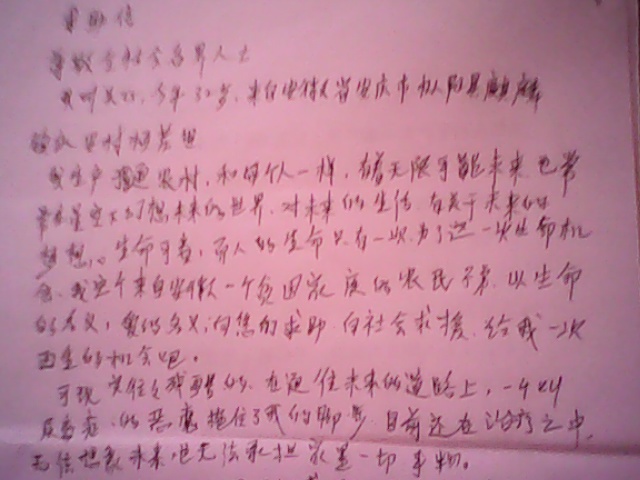 求助信
尊敬全社会各界人士
我叫 今年32岁,来自安徽省安庆市枞阳县麒麟
镇 村
我生产普通农村,和每个人一样,有着无限可能未来,也常
常在星空下幻想未来的世界,对未来的生活,有关于未来的
梦想。生命可贵,而人的生命只有一次,为了这一次生命机
会,我这个来自安徽一个贫困家庭的农民子弟,以生命
的名义,爱的名义,向您们求助,向社会求援,给我一次
重生的机会吧。
可现实往往残酷的,在通往未来的道路上,一个叫
的恶魔拖住了我的脚步,目前还在治疗之中,
无法想象未来,也无法承担家里一切事物。